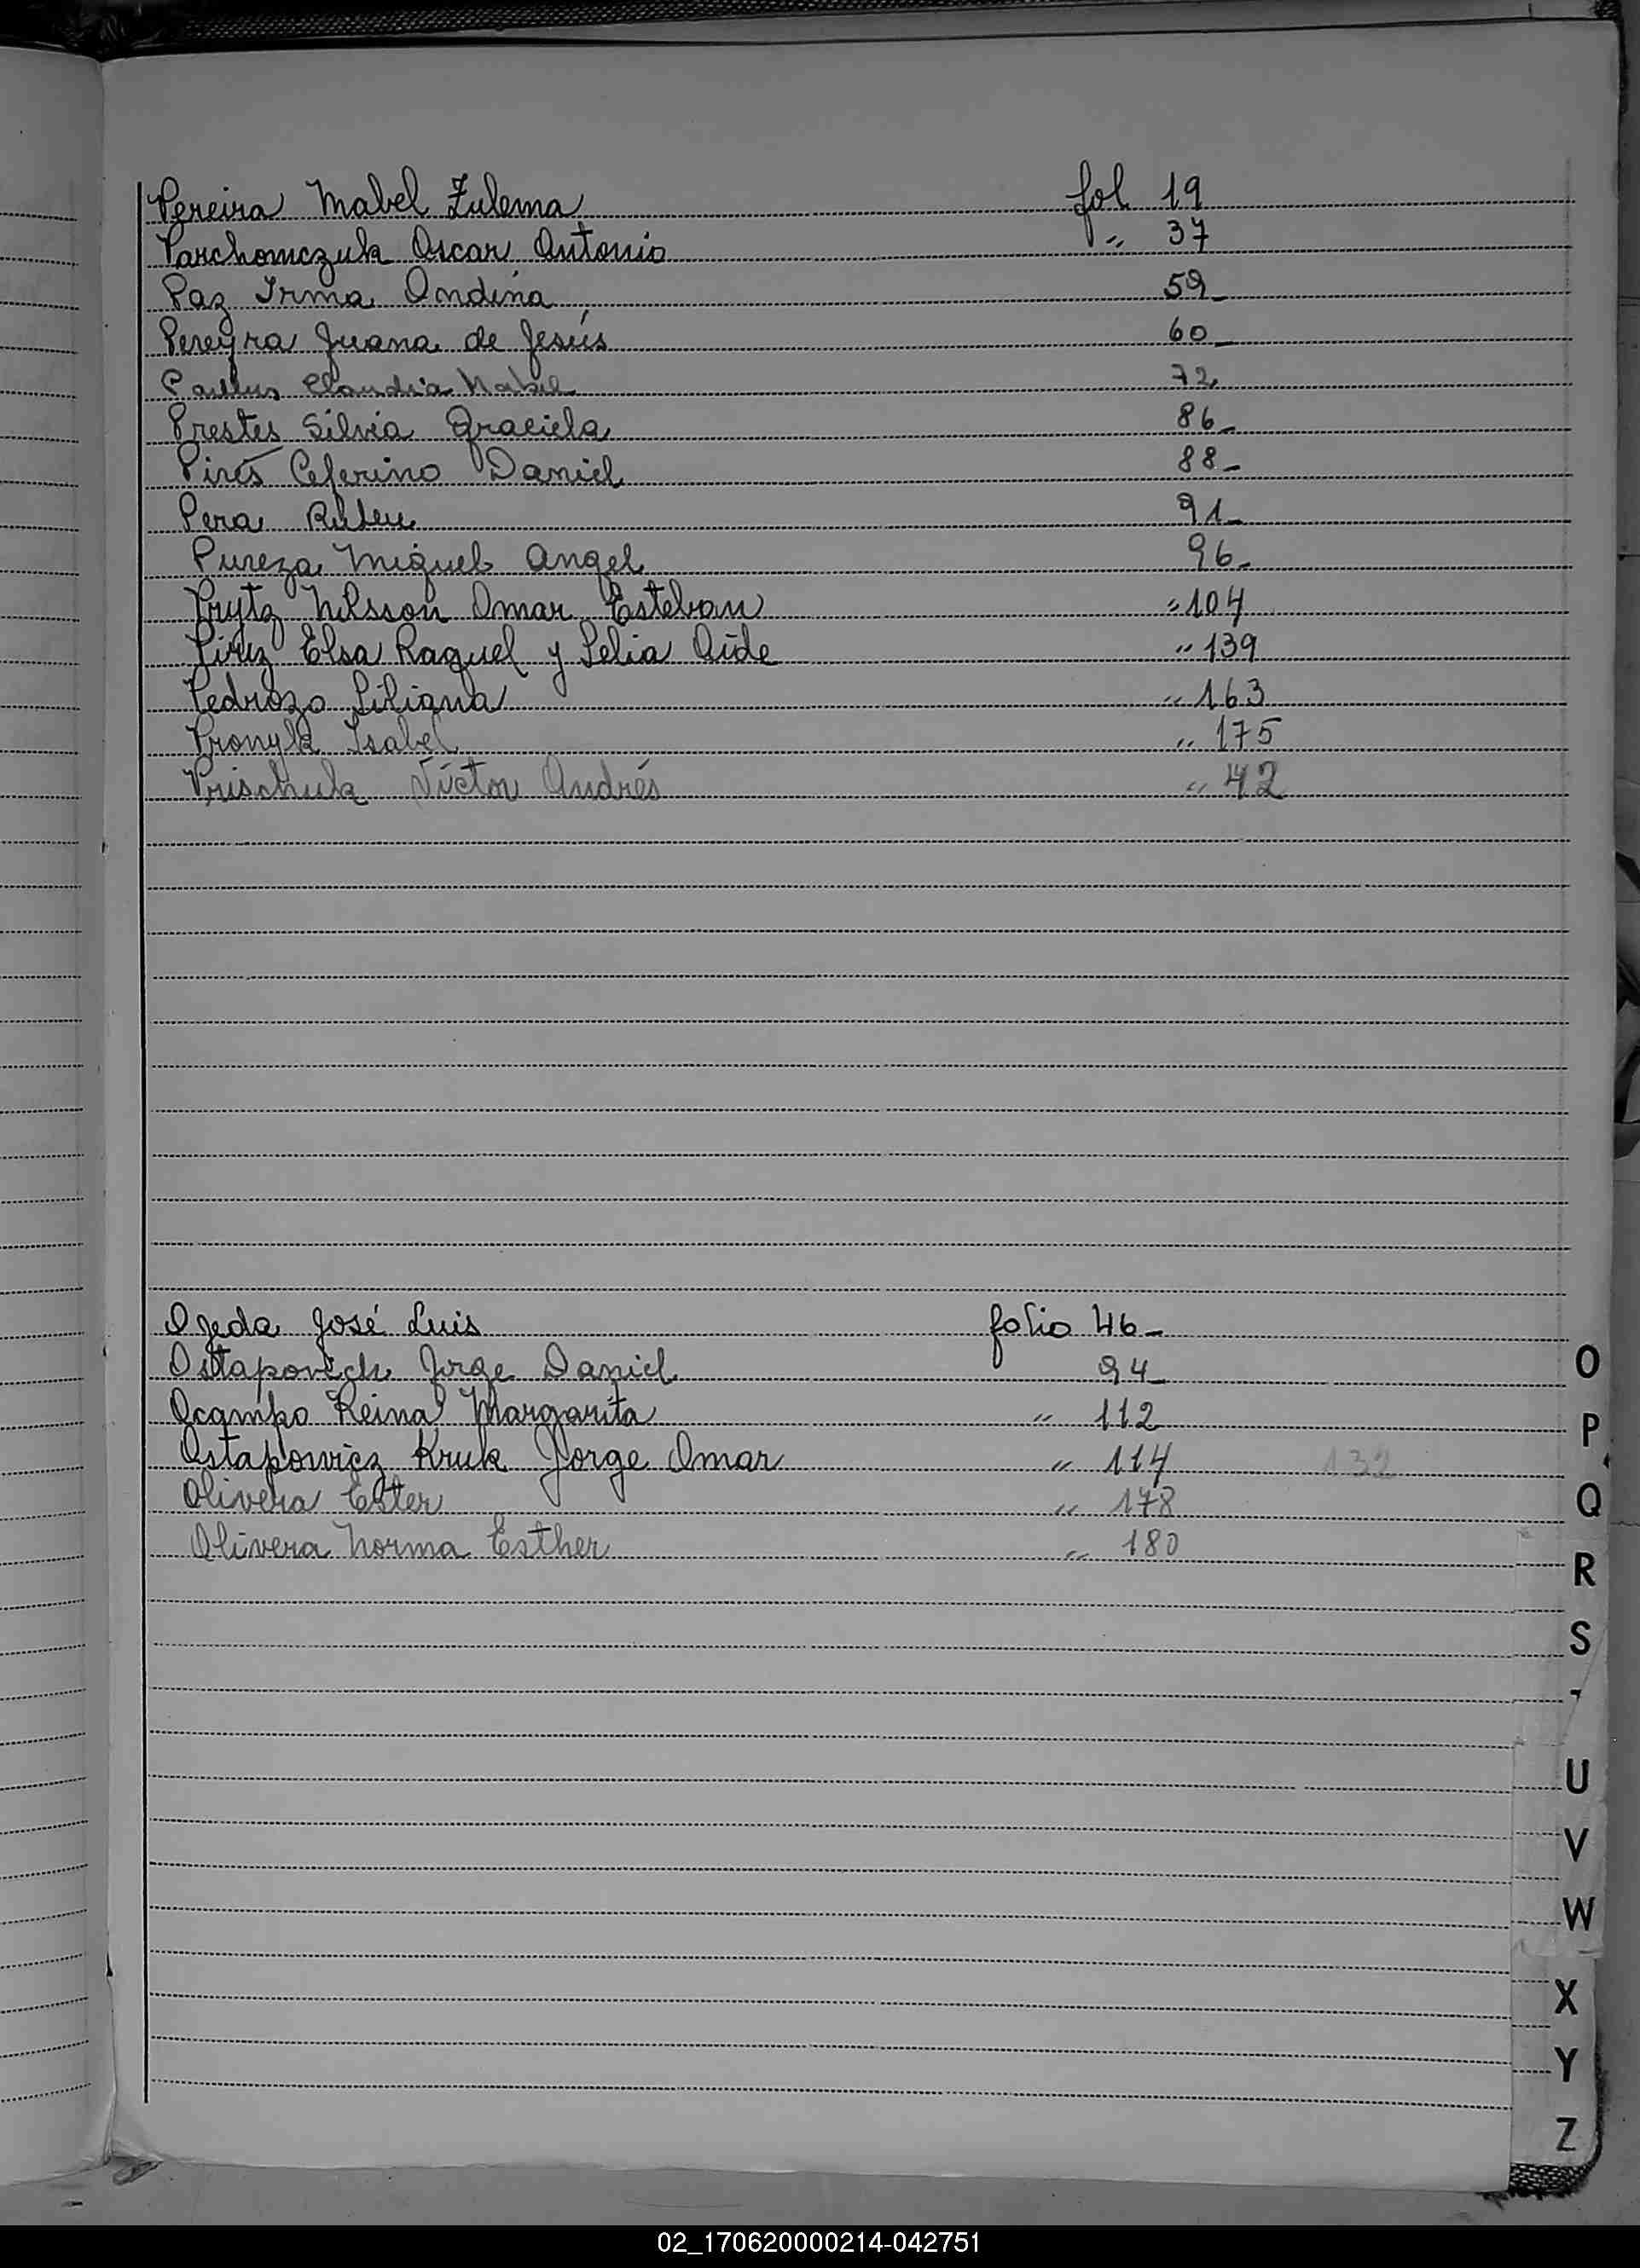 Pereira Mabel Zulema fol 19
Parchomczuk Oscar Antonio " 37
Paz Irma Ondina 59-
Pereyra Juana de Jesús 60-
Claudia Mabel 72
Prestes Silvia Graciela 86-
Pires Ceferino Daniel 88-
Pera Rubén 91-
Pureza Miguel Angel 96-
Prytz Nilsson Omar Esteban " 104
Piriz Elsa Raquel y Lelia Aide " 139
Pedrozo Liliana " 163
Pronyk Isabel " 175
Prischuk Víctor Andrés " 42
Ojeda José Luis folio 46-
Ostapovich Jorge Daniel 94-
Ocampo Reina Margarita " 112
Ostapowicz Kruk Jorge Omar " 114 132
Olivera Ester " 178
Olivera Norma Esther " 180
O
P
Q
R
S
U
V
W
X
Y
Z
02_170620000214-042751